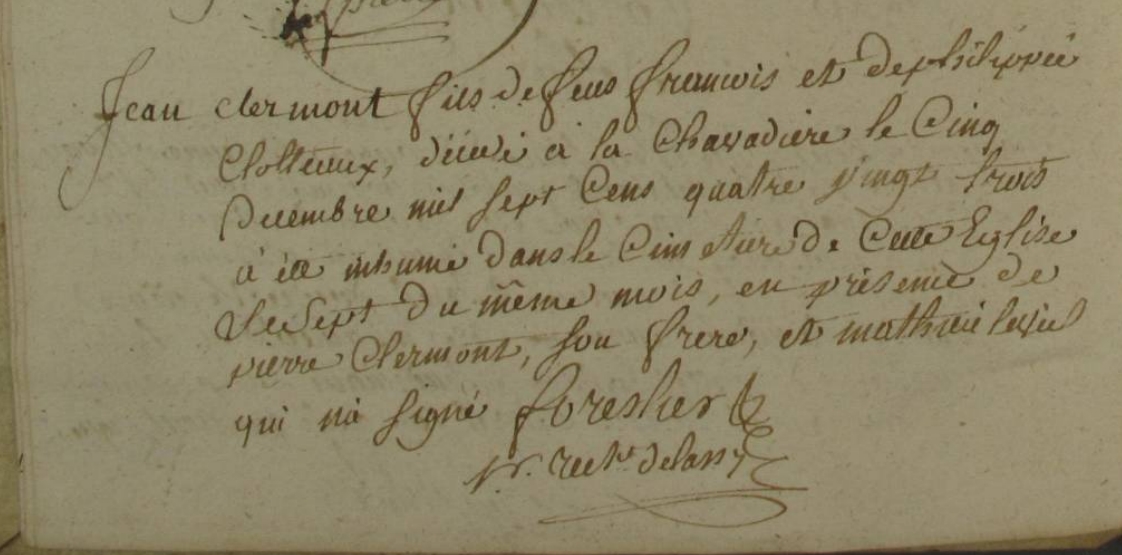 Jean Clermont fils de feus francois et de philippée
Clolteaux, décedé a la Chavadiere le Cinq
Decembre mil sept Cens quatre vingt trois
à été inhumé dans le Cimetiere de Cette Eglise
Le Sept du même mois, en présence de
pierre Clermont, son frere, et mathieu
qui n'a signé forestier